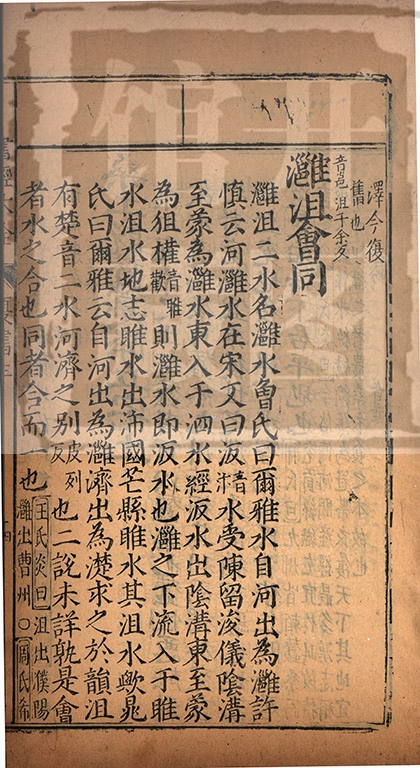 澤今復
舊也
音邕沮千余反
灉沮會同
灉沮二水名灉水曾氏曰爾雅水自河出為灉許
慎云河灉水在宋又曰汳音卞水受陳留浚儀陰溝
至蒙為灉水東入于泗水經汳水出陰溝東至蒙
為狙獾音歡雅則灉水即汳水也灉之下流入于睢
水沮水地志睢水出沛國芒縣睢水其沮水歟晁
氏曰爾雅云自河出為灉濟出為濋求之於韻沮
有楚音二水河濟之別皮列反也二說未詳孰是會
者水之合也同者合而一也王氏炎曰沮出濮陽
灉出曹州○周氏希